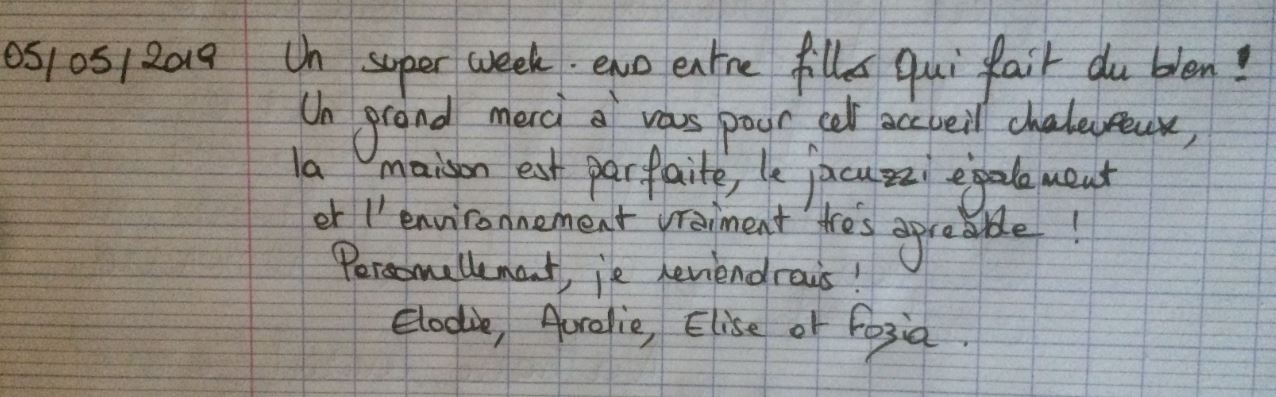 05/05/2019 Un super week-end entre filles qui fait du bien !
Un grand merci à vous pour cet accueil chaleureux,
la maison est parfaite, le jacuzzi également
et l'environnement vraiment très agréable !
Personnellement, je reviendrais !
Elodie, Aurelie, Elise et Fozia.